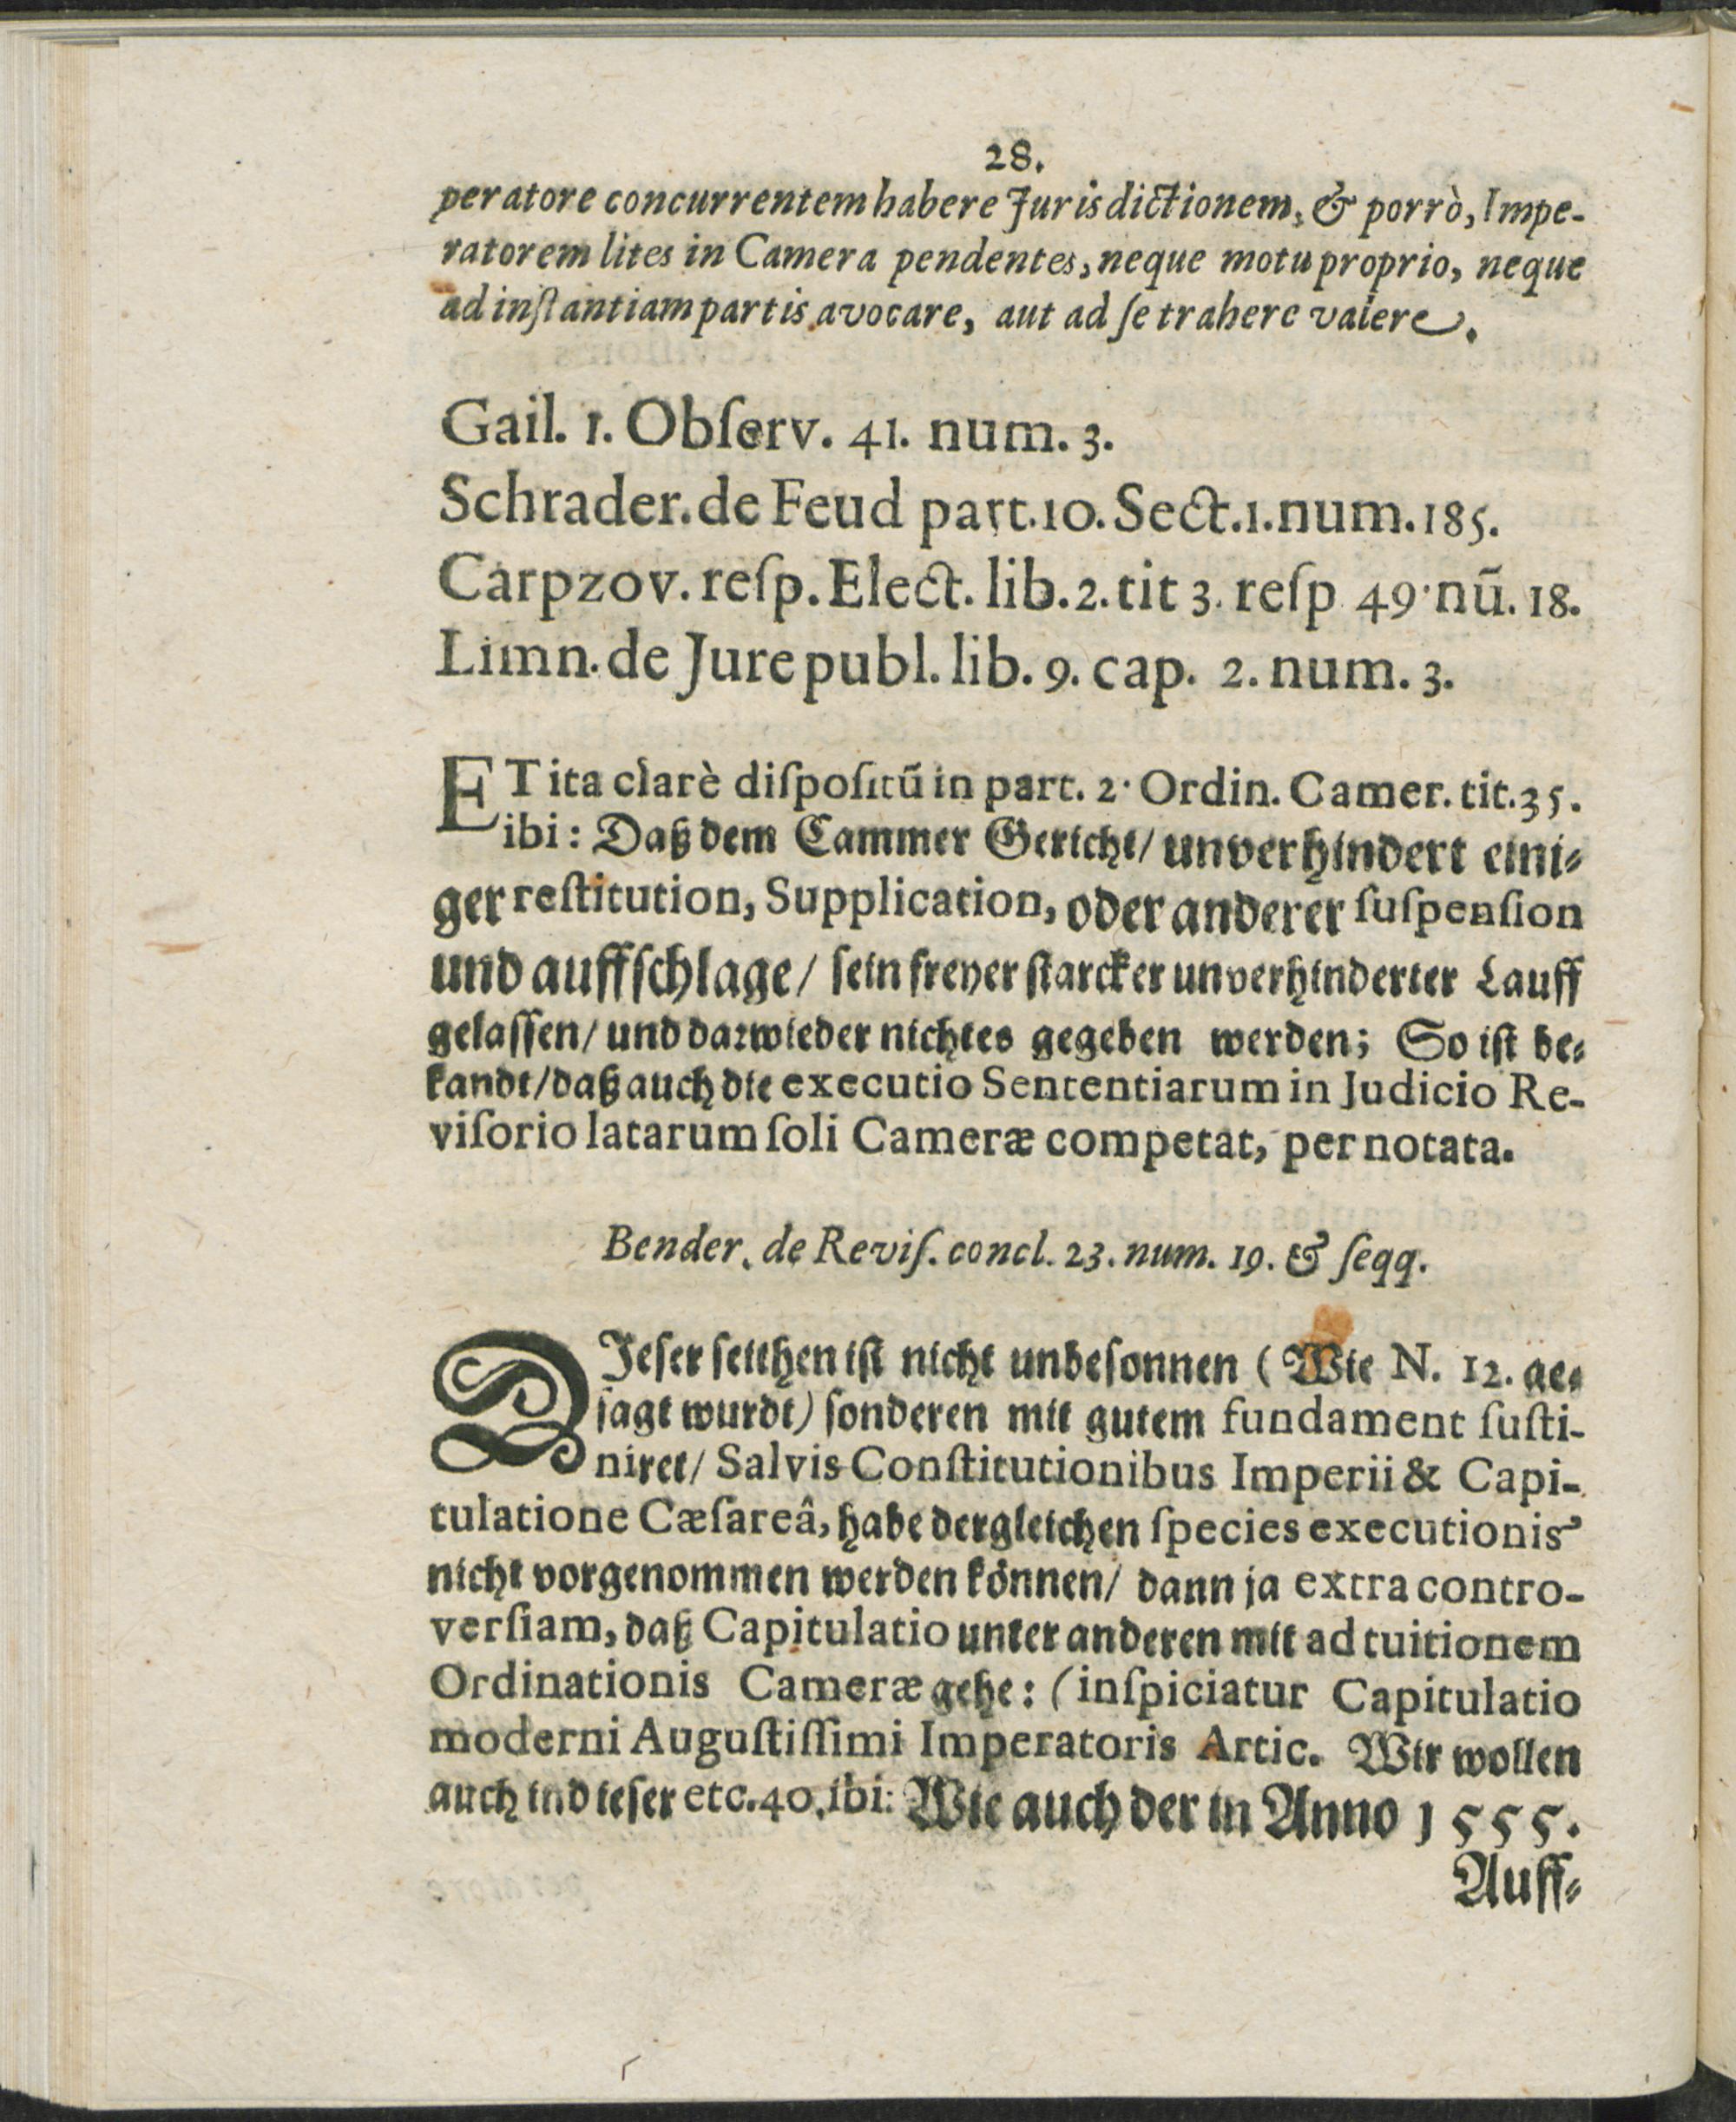 28.
peratore concurrentem habere Jurisdictionem, & porrò, Impe-
ratorem lites in Camera pendentes, neque motu proprio, neque
ad inſtantiam partis avocare, aut ad ſe trahere valere.
Gail. 1. Obſerv. 41. num. 3.
Schrader. de Feud part. 10. Sect. 1. num. 185.
Carpzov. reſp. Elect. lib. 2. tit 3. reſp 49. nũ. 18.
Limn. de Jure publ. lib. 9. cap. 2. num. 3.
ET ita clarè diſpoſitũ in part. 2. Ordin. Camer. tit. 35.
ibi: Daß dem Cammer Gericht/ unverhindert eini-
ger reſtitution, Supplication, oder anderer ſuſpenſion
und auffſchlage/ ſein freyer ſtarcker unverhinderter Lauff
gelaſſen/ und darwieder nichtes gegeben werden; So iſt be-
kandt/ daß auch die executio Sententiarum in Judicio Re-
viſorio latarum ſoli Cameræ competat, per notata.
Bender. de Reviſ. concl. 23. num. 19. & ſeqq.
DIeſer ſeithen iſt nicht unbeſonnen (Wie N. 12. ge-
ſagt wurdt) ſonderen mit gutem fundament ſuſti-
niret/ Salvis Conſtitutionibus Imperii & Capi-
tulatione Cæſareâ, habe dergleichen ſpecies executionis
nicht vorgenommen werden können/ dann ja extra contro-
verſiam, daß Capitulatio unter anderen mit ad tuitionem
Ordinationis Cameræ gehe: (inſpiciatur Capitulatio
moderni Auguſtiſſimi Imperatoris Artic. Wir wollen
auch ind ieſer etc. 40. ibi: Wie auch der in Anno 1555.
Auff-